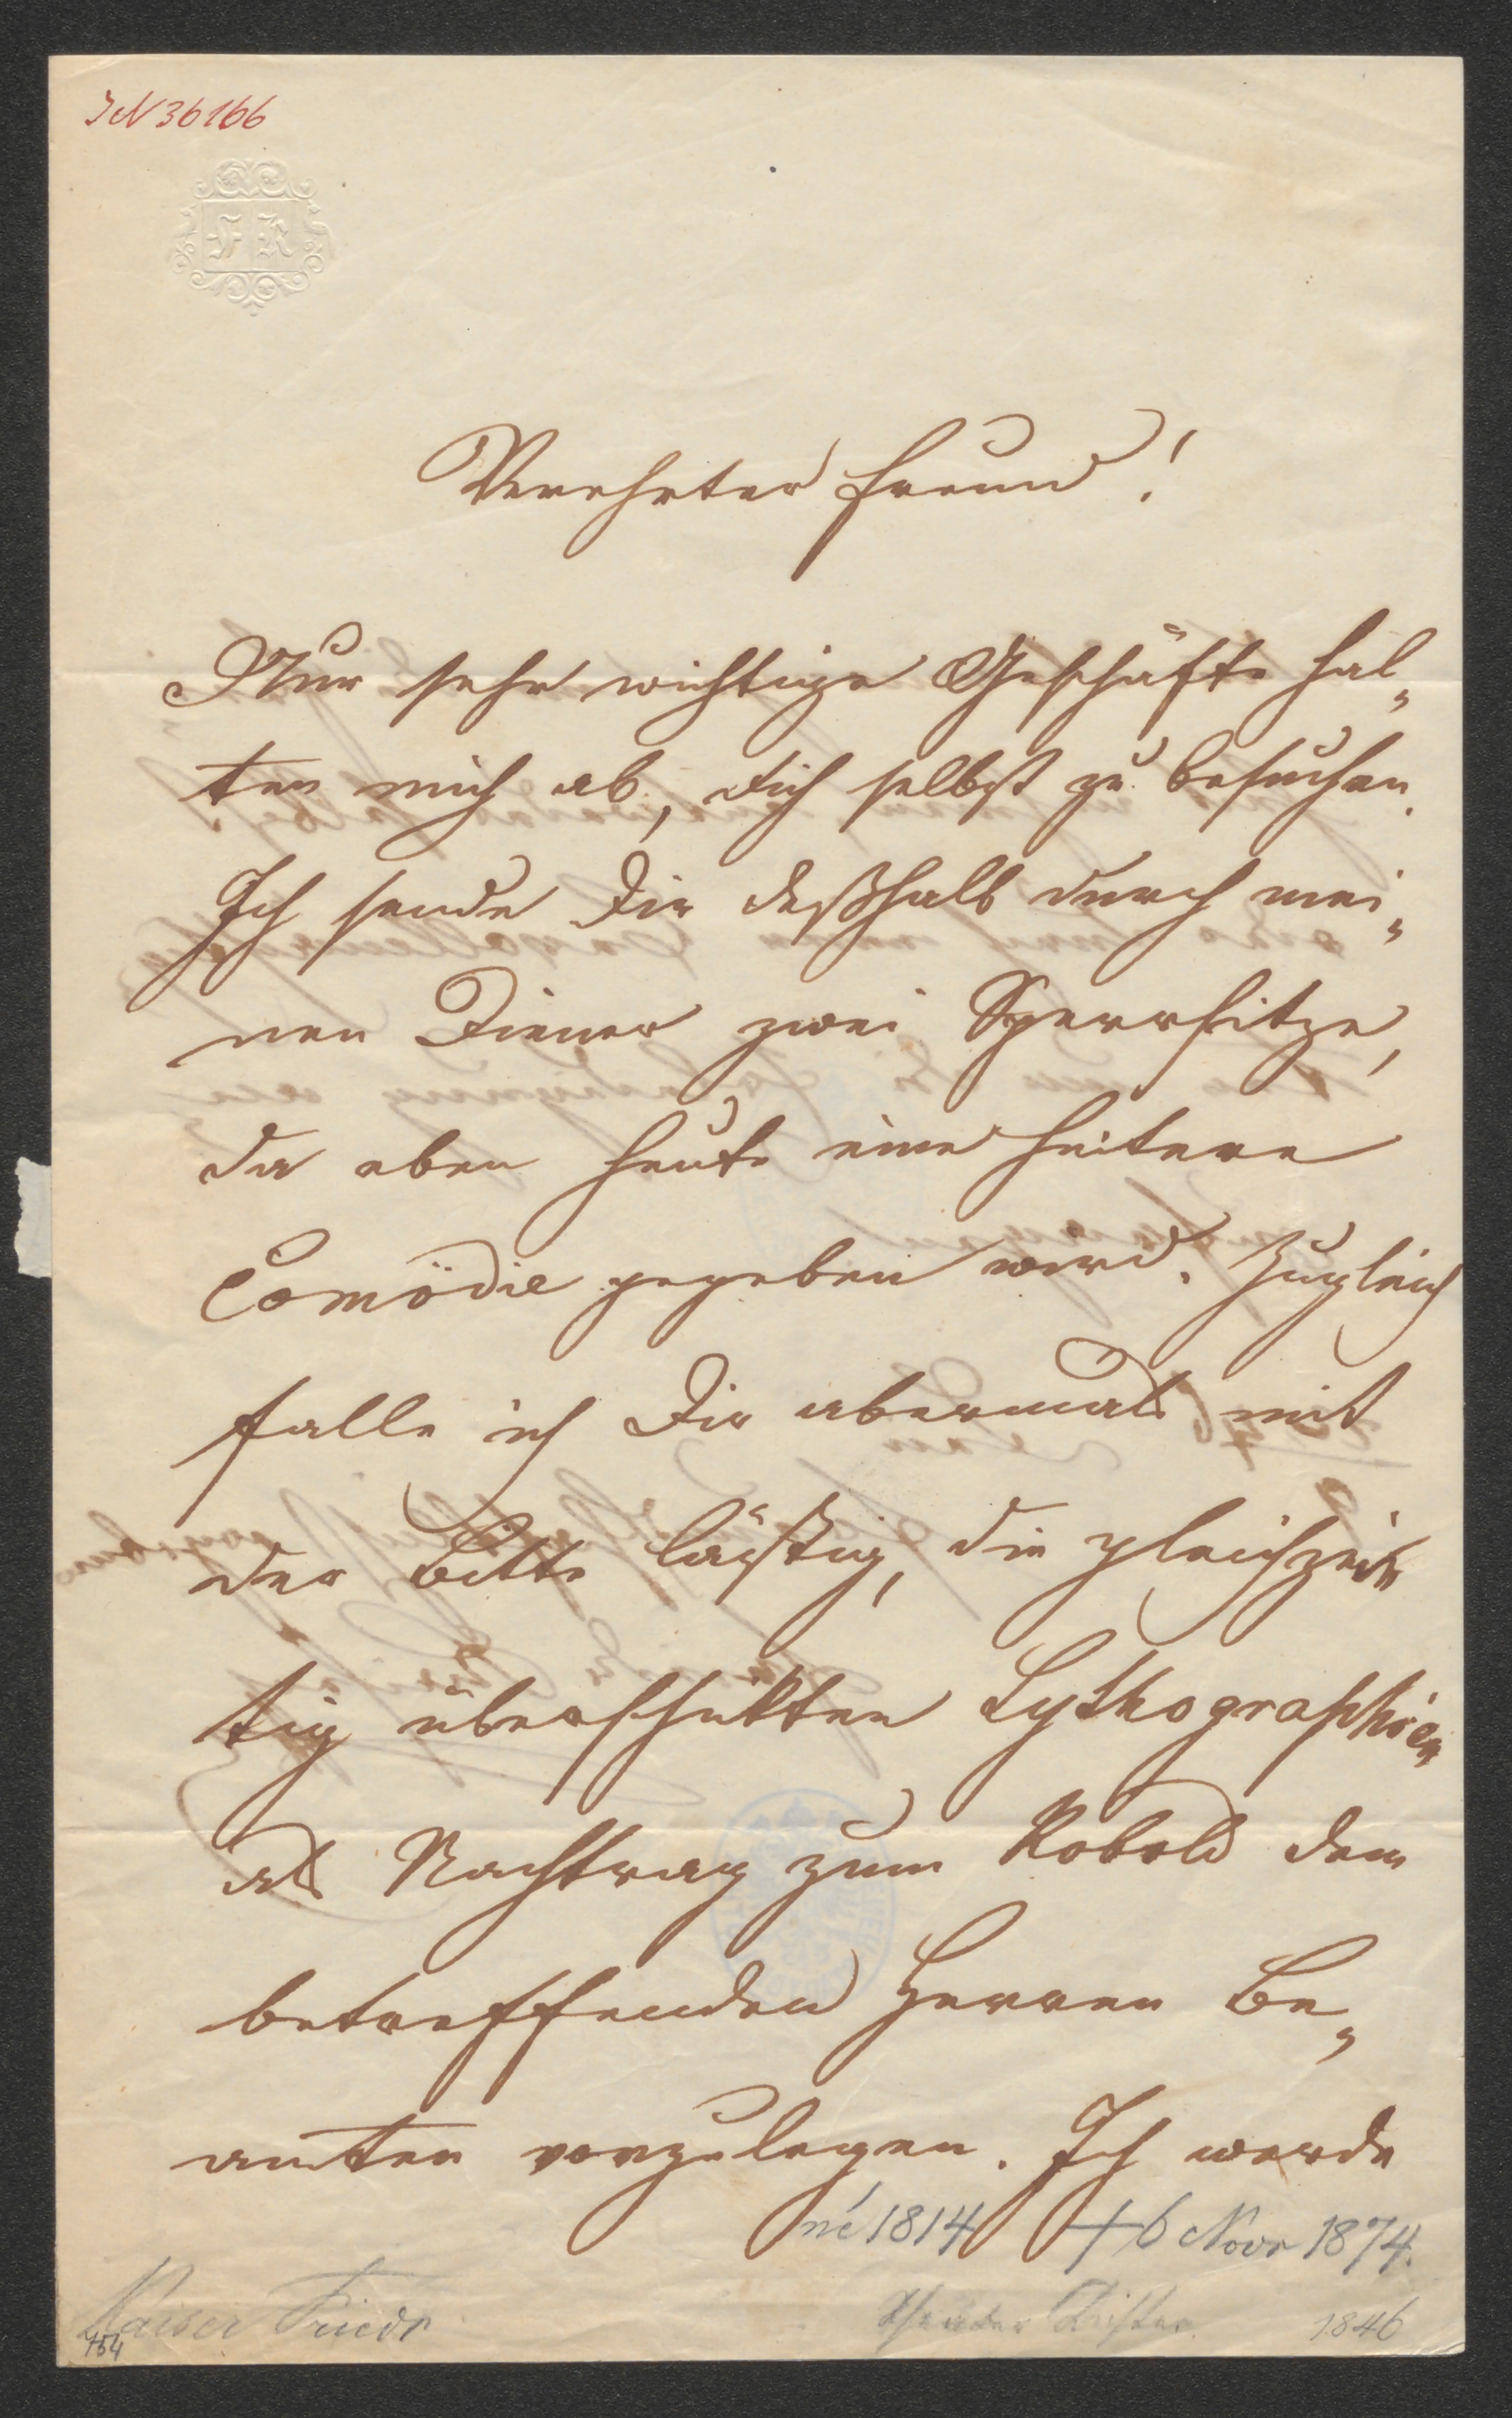 IN 36166
F K
Verehrter Freund!
Nur sehr wichtige Geschäfte hal„
ten mich ab, dich selbst zu besuchen.
Ich sende Dir deßhalb durch mei„
nen Diener zwei Sperrsitze,
da eben heute eine heitere
Comödie gegeben wird. Zugleich
falle ich Dir abermals mit
der Bitte lästig, die gleichzei„
tig überschickten Lythographien
als Nachtrag zum Kobold dem
betreffenden Herren Be„
amten vorzulegen. Ich werde
né 1814 † 6 Novr 1874.
Kaiser Friedr
1846
154